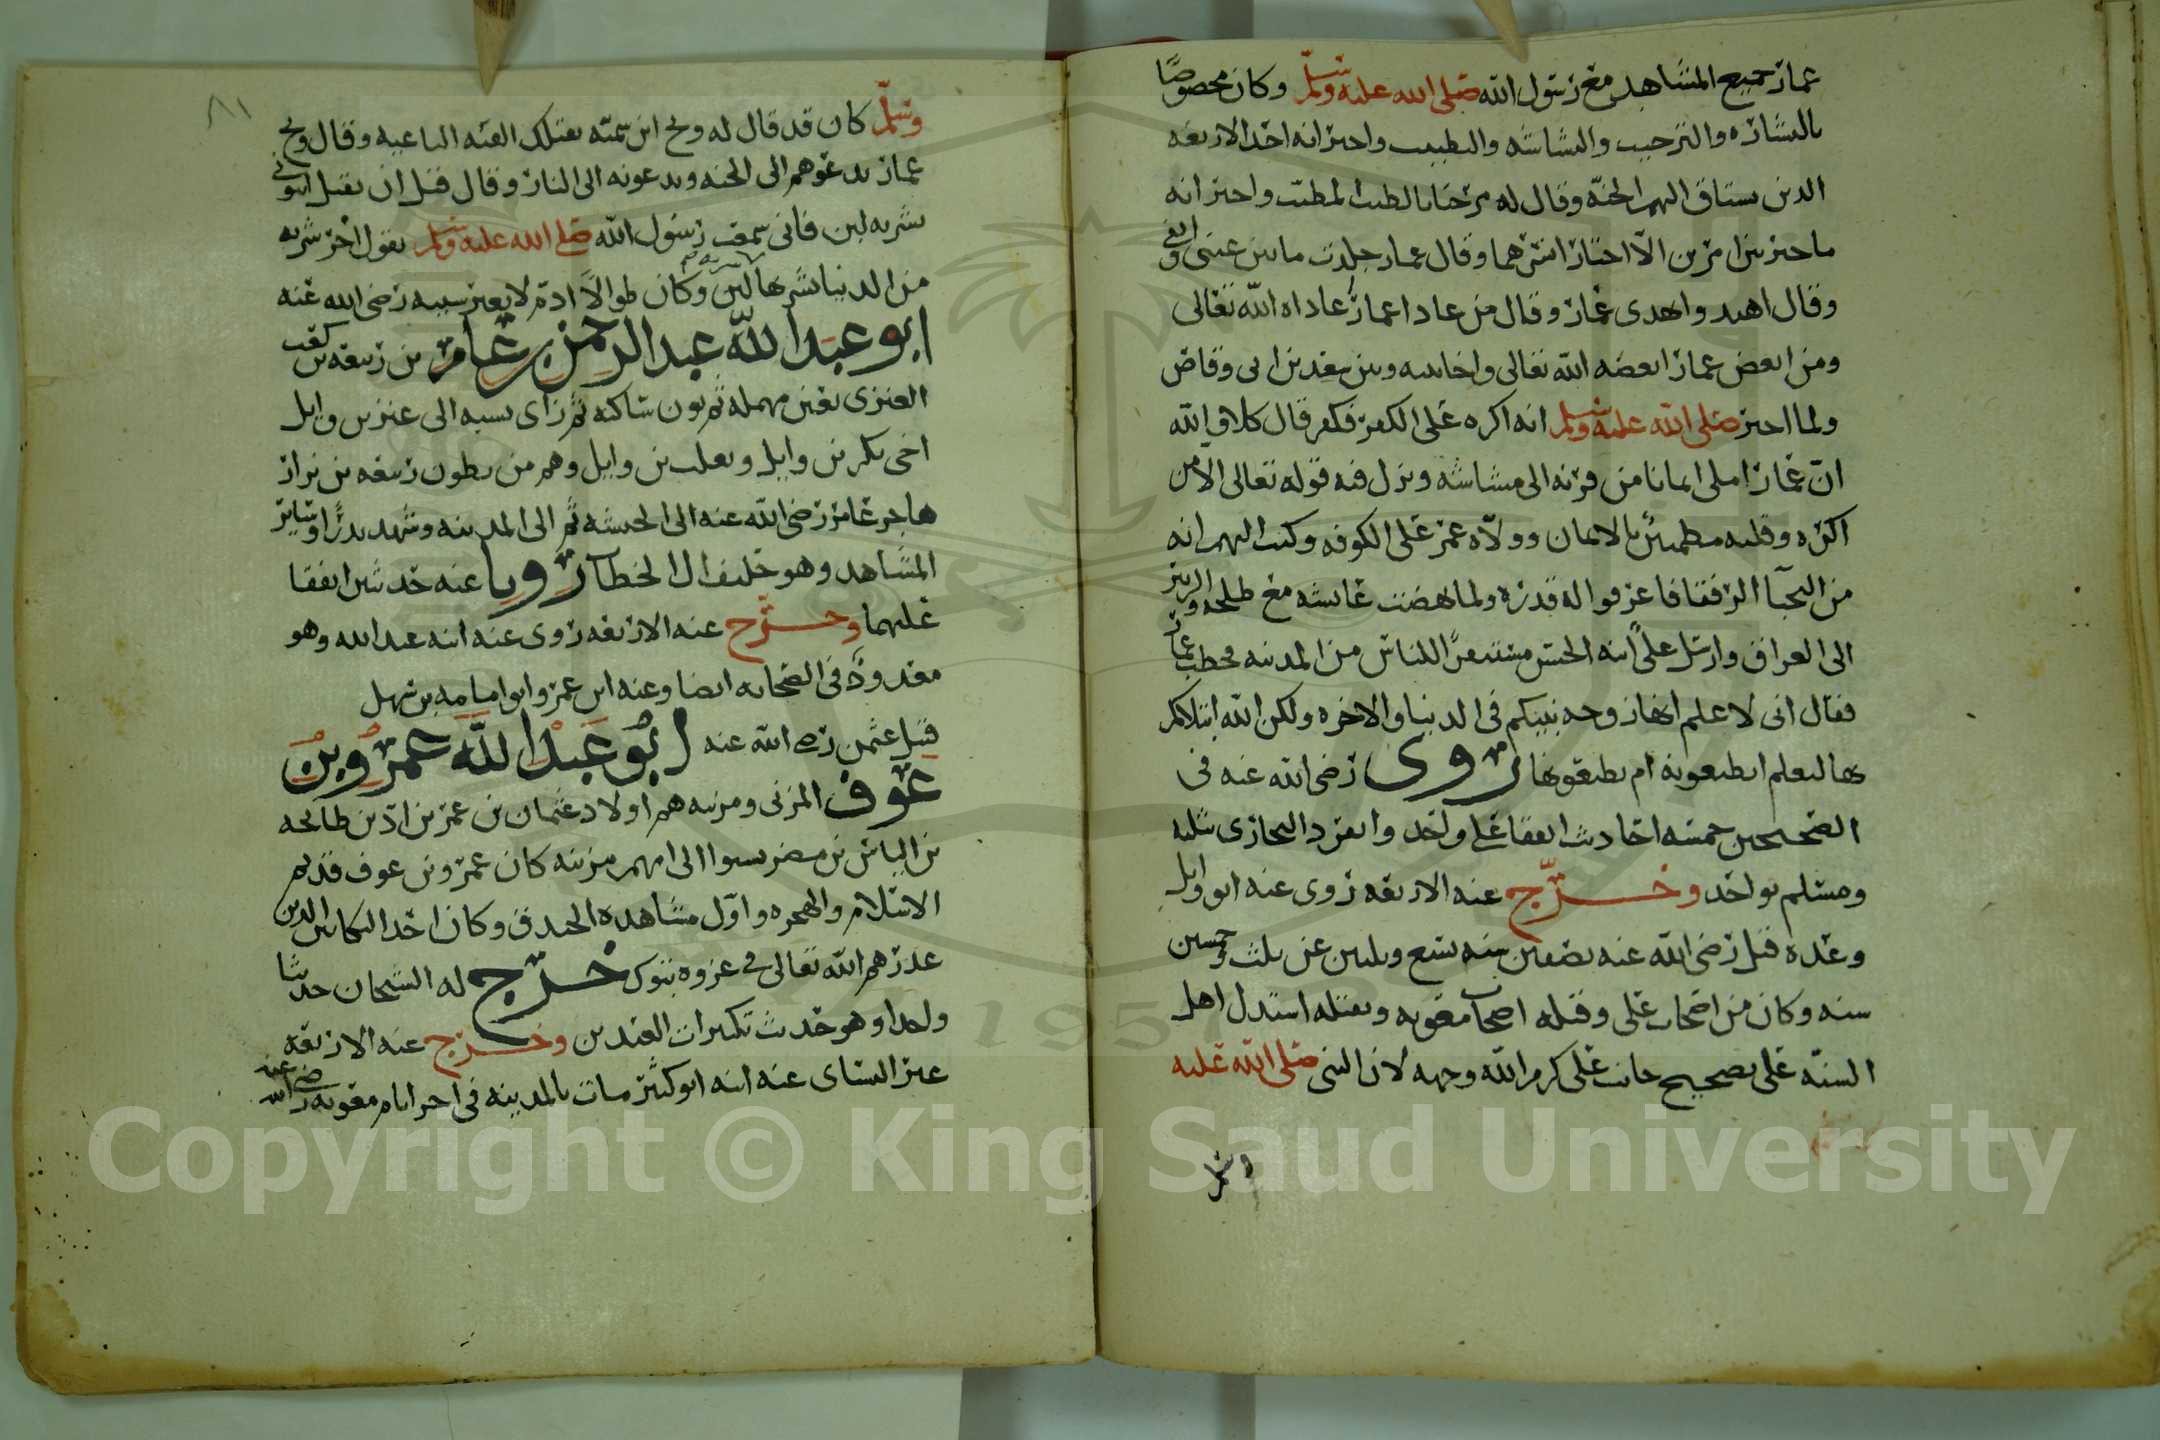 عمار جميع المشاهد مع رسول الله صلى الله عليه وسلم وكان مخصوصا
بالبشاره والترحيب والبشاشه والتطييب واخبر انه احد الاربعه
الذين تشتاق اليهم الجنه وقال له مرحبا بالطيب المطيب واخبر انه
ما خير بين امرين الا اختار ايسرهما وقال عمار جلدت ما بين عيني وانفي
وقال اهتدوا بهدى عمار وقال من عادا عمار عاداه الله تعالى
ومن ابغض عمار ابغضه الله تعالى واخا بينه وبين سعد بن ابي وقاص
ولما اخبر صلى الله عليه وسلم انه اكره على الكفر فكفر قال كلا والله
ان عمار املى ايمانا من قرنه الى مشاشه ونزل فيه قوله تعالى الا من
اكره وقلبه مطمئن بالايمان وولاه عمر على الكوفه وكتب اليهم انه
من النجبا الرفقا فاعرفوا له قدره ولما نهضت عايشه مع طلحه والزبير
الى العراق وارسل علي ابنه الحسن مستنفرا للناس من المدينه فخطب عمار
فقال اني لاعلم انها زوجه نبيكم في الدنيا والاخره ولكن الله ابتلاكم
بها ليعلم اتطيعونه ام تطيعونها روى رضي الله عنه في
الصحيحين خمسه احاديث اتفقا على واحد وانفرد البخاري بثلثه
ومسلم بواحد وخرج عنه الاربعه روى عنه ابو وايل
وعده قتل رضي الله عنه بصفين سنه سبع وثلثين عن ثلث وتسعين
سنه وكان من اصحاب علي وقتله اصحاب معويه وبقتله استدل اهل
السنه على تصحيح جانب علي كرم الله وجهه لان النبي صلى الله عليه
وسلم كان قد قال له ويح ابن سميه تقتلك الفئه الباغيه وقال ويح
عمار يدعوهم الى الجنه ويدعونه الى النار وقال قبل ان يقتل ايتوني
بشربه لبن فاني سمعت رسول الله صلى الله عليه وسلم يقول اخر شربه
من الدنيا تشربها لبن وكان طوالا ادم لا يغير شيبه رضي الله عنه
ابو عبد الله عبد الرحمن بن عامر بن ربيعه بن كعب
العنزي بعين مهمله ثم نون ساكنه ثم زاى نسبه الى عنز بن وايل
اخي بكر بن وايل وتغلب بن وايل وهم من بطون ربيعه بن نزار
هاجر عامر رضي الله عنه الى الحبشه ثم الى المدينه وشهد بدرا وساير
المشاهد وهو حليف ال الخطاب رويا عنه حديثين اتفقا
عليهما وخرج عنه الاربعه روى عنه ابنه عبد الله وهو
معدود في الصحابه ايضا وعنه ابن عمر وابو امامه بن سهل
قتيل عثمن رضي الله عنه ابو عبد الله عمرو بن
عوف المزني ومزينه هم اولاد عثمان بن عمر بن اد بن طابخه
بن الياس بن مضر نسبوا الى امهم مزينه كان عمرو بن عوف قديم
الاسلام والهجره واول مشاهده الخندق وكان احد البكائين الذين
عذرهم الله تعالى في غزوه تبوك خرج له الشيخان حديثا
واحدا وهو حديث تكبيرات العيدين وخرج عنه الاربعه
غير النسائ عنه ابنه ابو كثير مات بالمدينه في اخر ايام معويه رضي الله عنه
Copyright © King Saud University
1957